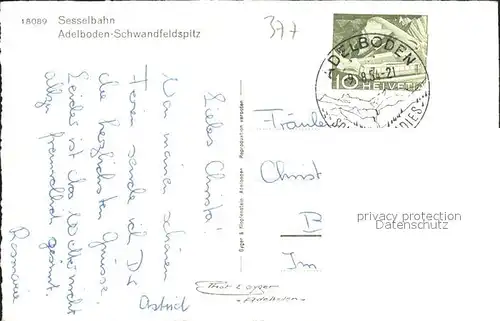 18089 Sesselbahn
Adelboden-Schwandfeldspitz
377
ADELBODEN
8.54-21
10 HELVETIA
Liebes Christa!
Von meinen schönen
Ferien sende ich Dir
die herzlichsten Grüsse.
Leider ist das Wetter nicht
allzu freundlich gesinnt.
Astrid
Rosmarie
Gyger & Klopfenstein, Adelboden - Reproduktion verboten
Fräulein
Christ
B
Im
privacy protection
Datenschutz
Gyger
Adelboden